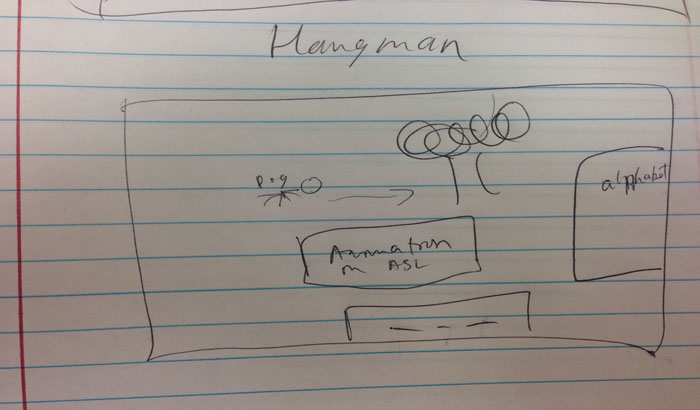 Hangman
pig
alphabet
Annimation
in ASL
_ _ _